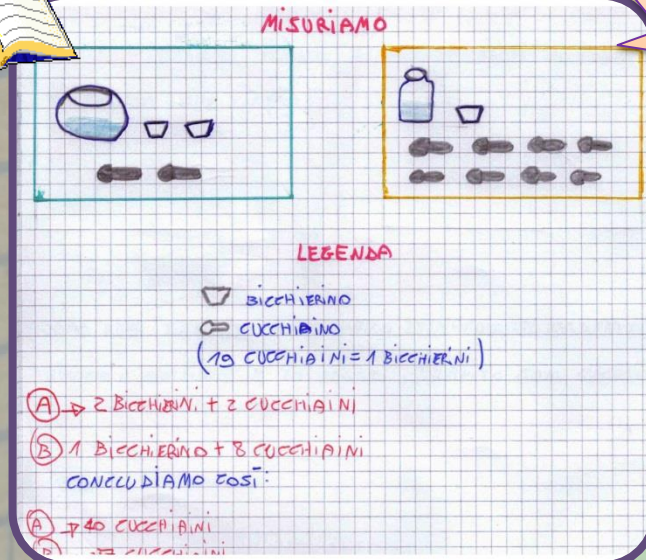 MISURIAMO
LEGENDA
BICCHIERINO
CUCCHIAINO
(19 CUCCHIAINI = 1 BICCHIERINI)
A → 2 BICCHIERINI + 2 CUCCHIAINI
B 1 BICCHIERINO + 8 CUCCHIAINI
CONCLUDIAMO COSÌ:
A → 40 CUCCHIAINI
B 27 CUCCHIAINI